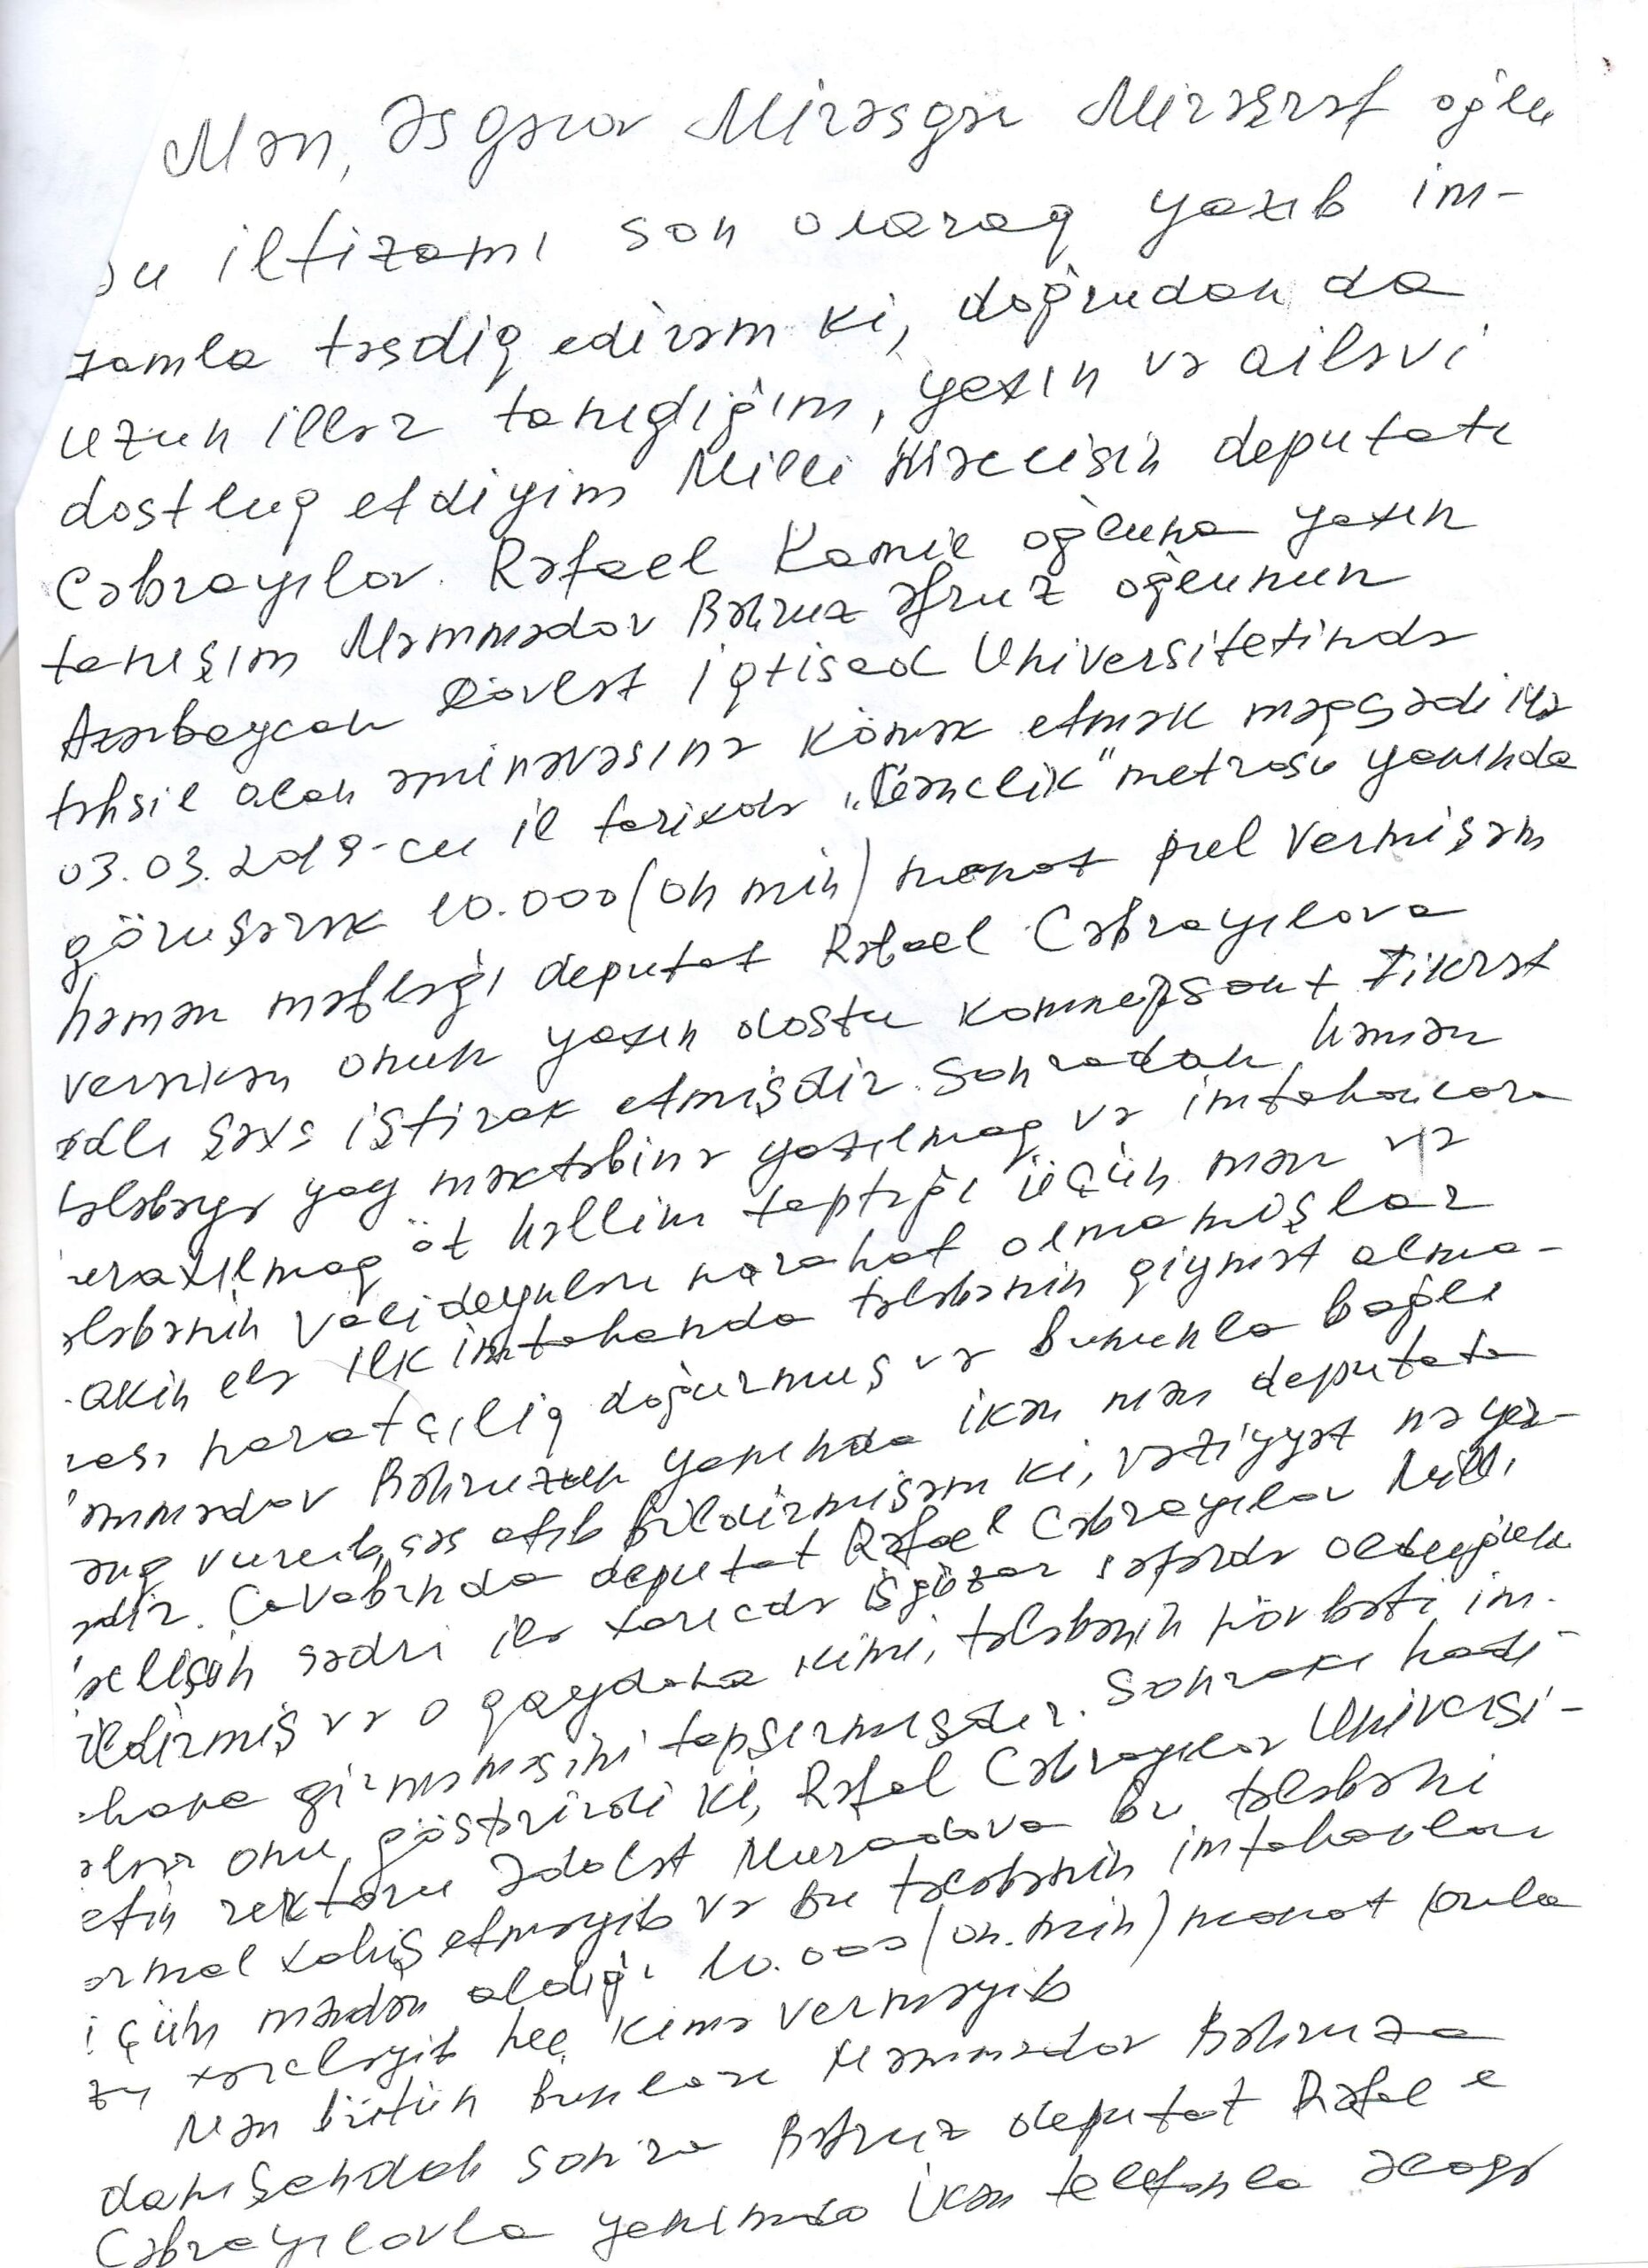 Mən, Əsgərov Mirəsgər Mirəşrəf oğlu
bu iltizamı son olaraq yazıb im-
zamla təsdiq edirəm ki, doğrudan da
uzun illər tanıdığım, yaxın və ailəvi
dostluq etdiyim Milli Məclisin deputatı
Cəbrayılov Rəfael Kamil oğluna yaxın
tanışım Məmmədov Bəhruz Əfruz oğlunun
Azərbaycan Dövlət İqtisad Universitetində
təhsil alan əminəvəsinə kömək etmək məqsədi ilə
03.03.2019-cu il tarixdə "Gənclik" metrosu yanında
görüşərək 10.000 (on min) manat pul vermişəm
həmən məbləği deputat Rəfael Cəbrayılova
verərkən onun yaxın dostu Fikrət
adlı şəxs iştirak etmişdir. Sonradan həmən
tələbəyə yay məktəbinə yazılmaq və imtahanlara
buraxılmaq öz həllini taptığı üçün mən və
tələbənin valideynləri narahat olmamışlar
lakin elə ilk imtahanda tələbənin qiymət alma-
ması naratçılıq doğurmuş və bununla bağlı
Məmmədov Bəhruzun yanında ikən mən deputata
zəng vurub, səs atıb bildirmişəm ki, vəziyyət nə yer-
dədir. Cavabında deputat Rəfael Cəbrayılov Milli
Məclisin sədri ilə xaricdə işgüzar səfərdə olduğunu
bildirmiş və o qaydana kimi, tələbənin növbəti im-
tahana girməməsini tapşırmışdır. Sonrakı hadi-
sələr onu göstərirdi ki, Rəfael Cəbrayılov Universi-
tetin rektoru Ədalət Muradova bu tələbəni
normal xahiş etməyib və bu tələbənin imtahanları
üçün məndən aldığı 10.000 (on min) manat pulu
xərcləyib heç kimə verməyib
Mən bütün bunları Məmmədov Bəhruza
danışandan sonra Bəhruz deputat Rəfael
Cəbrayılovla yanımda ikən telefonla əlaqə